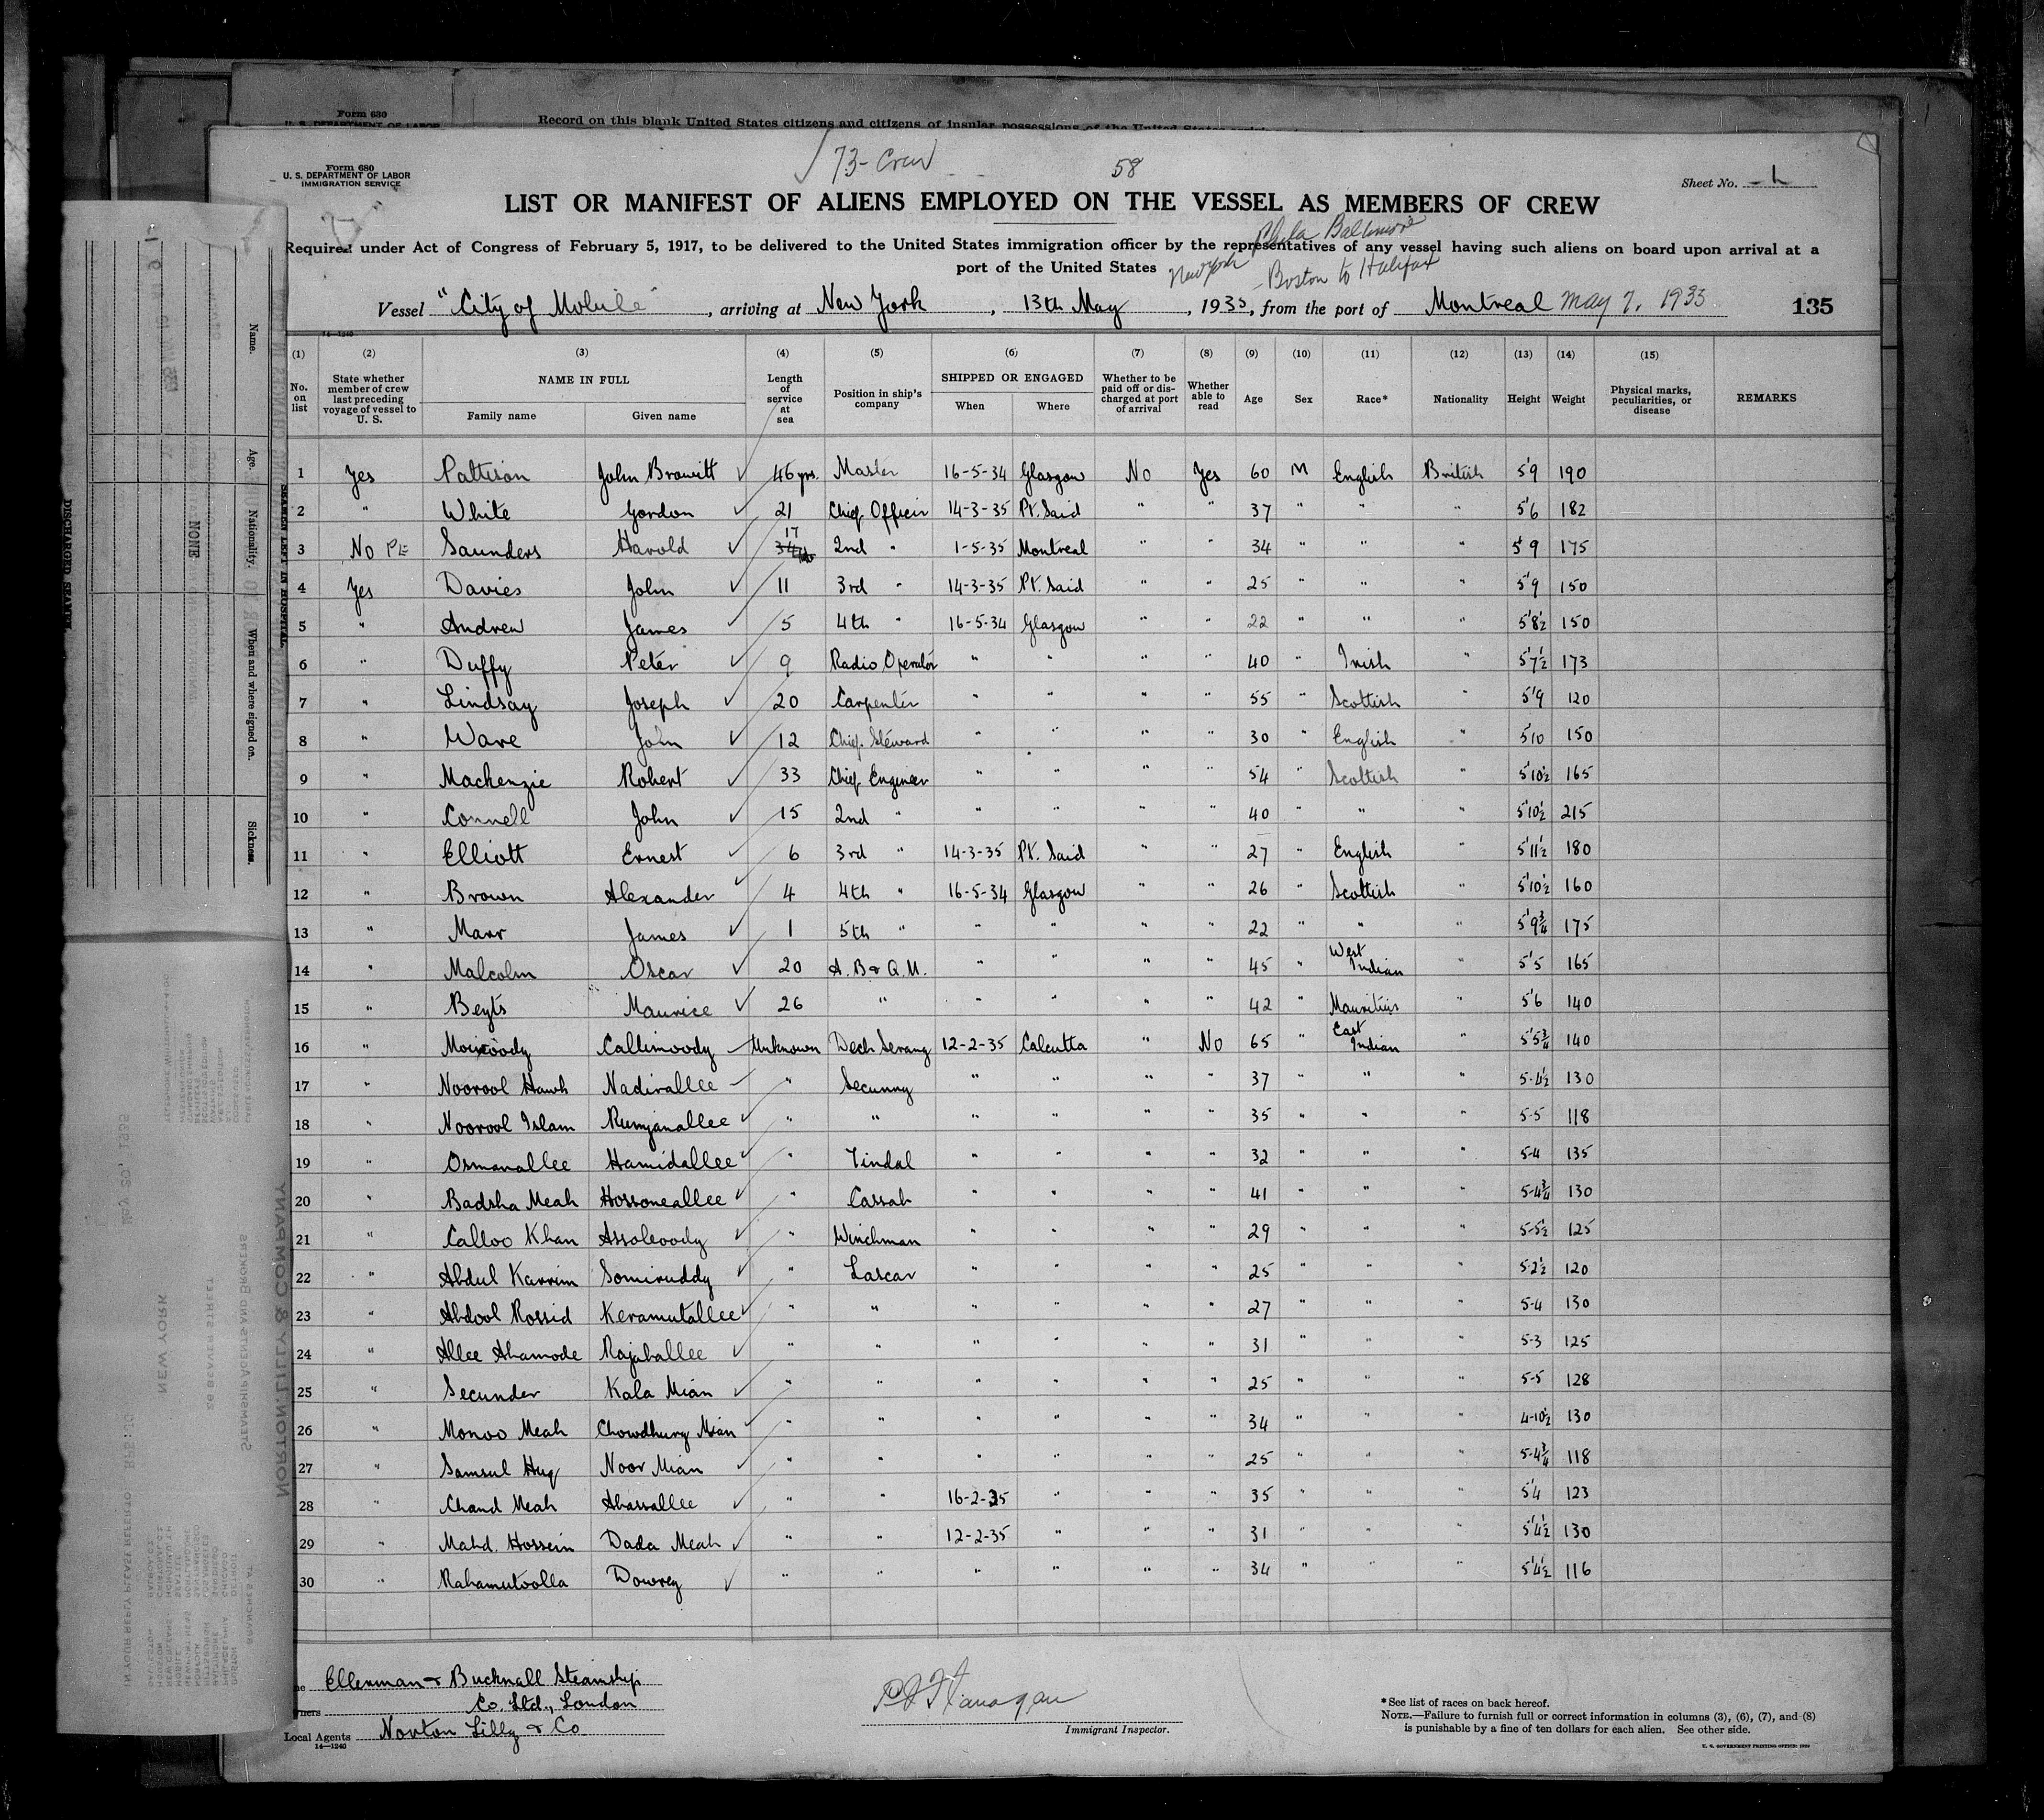 Form 630
U. S. DEPARTMENT OF LABOR
Record on this blank United States citizens and citizens of insular possessions of the United States
73- Crew
58
Form 680
U. S. DEPARTMENT OF LABOR
IMMIGRATION SERVICE
Sheet No. 1
LIST OR MANIFEST OF ALIENS EMPLOYED ON THE VESSEL AS MEMBERS OF CREW
Phila Baltimore
Required under Act of Congress of February 5, 1917, to be delivered to the United States immigration officer by the representatives of any vessel having such aliens on board upon arrival at a
port of the United States
New York - Boston to Halifax
Vessel "City of Mobile", arriving at New York, 13th May, 1935, from the port of Montreal May 7, 1935
135
14-1240
(1) (2) (3) (4) (5) (6) (7) (8) (9) (10) (11) (12) (13) (14) (15)
No. on list State whether member of crew last preceding voyage of vessel to U. S. NAME IN FULL Family name Given name Length of service at sea Position in ship's company SHIPPED OR ENGAGED When Where Whether to be paid off or discharged at port of arrival Whether able to read Age Sex Race* Nationality Height Weight Physical marks, peculiarities, or disease REMARKS
1 Yes Pattison John Browitt 46 yrs. Master 16-5-34 Glasgow No Yes 60 M English British 5'9 190
2 " White Gordon 21 Chief Officer 14-3-35 Pt. Said " " 37 " " " 5'6 182
3 No Saunders Harold 17 2nd " 1-5-35 Montreal " " 34 " " " 5'9 175
4 Yes Davies John 11 3rd " 14-3-35 Pt. Said " " 25 " " " 5'9 150
5 " Andrew James 5 4th " 16-5-34 Glasgow " " 22 " " " 5'8½ 150
6 " Duffy Peter 9 Radio Operator " " " " 40 " Irish " 5'7½ 173
7 " Lindsay Joseph 20 Carpenter " " " " 55 " Scottish " 5'9 120
8 " Ware John 12 Chief Steward " " " " 30 " English " 5'10 150
9 " Mackenzie Robert 33 Chief Engineer " " " " 54 " Scottish " 5'10½ 165
10 " Connell John 15 2nd " " " " " 40 " " " 5'10½ 215
11 " Elliott Ernest 6 3rd " 14-3-35 Pt. Said " " 27 " English " 5'11½ 180
12 " Brown Alexander 4 4th " 16-5-34 Glasgow " " 26 " Scottish " 5'10½ 160
13 " Marr James 1 5th " " " " " 22 " " " 5'9¾ 175
14 " Malcolm Oscar 20 A. B & Q.M. " " " " 45 " West Indian " 5'5 165
15 " Beyts Maurice 26 " " " " " 42 " Mauritius " 5'6 140
16 " Callimoody Unknown Deck Serang 12-2-35 Calcutta " No 65 " East Indian " 5'5¾ 140
17 " Noorool Hawk Nadirallee " Secunny " " " " 37 " " " 5-4½ 130
18 " Noorool Islam Rumjanallee " " " " " " 35 " " " 5-5 118
19 " Osmanallee Hamidallee " Tindal " " " " 32 " " " 5-4 135
20 " Badsha Meah Hossoneallee " Cassab " " " " 41 " " " 5-4¾ 130
21 " Calloo Khan Assoloody " Winchman " " " " 29 " " " 5-5½ 125
22 " Abdul Karrim Somiruddy " Lascar " " " " 25 " " " 5-2½ 120
23 " Abdool Rossid Keramutallee " " " " " " 27 " " " 5-4 130
24 " Allee Ahamode Rajaballee " " " " " " 31 " " " 5-3 125
25 " Secunder Kala Mian " " " " " " 25 " " " 5-5 128
26 " Monoo Meah Chowdhury Mian " " " " " " 34 " " " 4-10½ 130
27 " Samsul Huq Noor Mian " " " " " " 25 " " " 5-4¾ 118
28 " Chand Meah Abassallee " " 16-2-35 " " " 35 " " " 5'4 123
29 " Mahd. Hossein Dada Meah " " 12-2-35 " " " 31 " " " 5'4½ 130
30 " Rahamutoolla Dowrey " " " " " " 34 " " " 5'4½ 116
Ellerman & Bucknall Steamship
Co. Ltd., London
Local Agents Norton Lilly & Co
14-1240
Immigrant Inspector.
*See list of races on back hereof.
NOTE.—Failure to furnish full or correct information in columns (3), (6), (7), and (8)
is punishable by a fine of ten dollars for each alien. See other side.
U. S. GOVERNMENT PRINTING OFFICE
Name.
Age.
Nationality.
When and where signed on.
Sickness.
NONE
DISCHARGED SEAMEN
SEAMEN LEFT IN HOSPITAL
NORTON, LILLY & COMPANY
STEAMSHIP AGENTS AND BROKERS
26 BEAVER STREET
NEW YORK
May 20, 1935
IN YOUR REPLY PLEASE REFER TO
BRANCHES AT